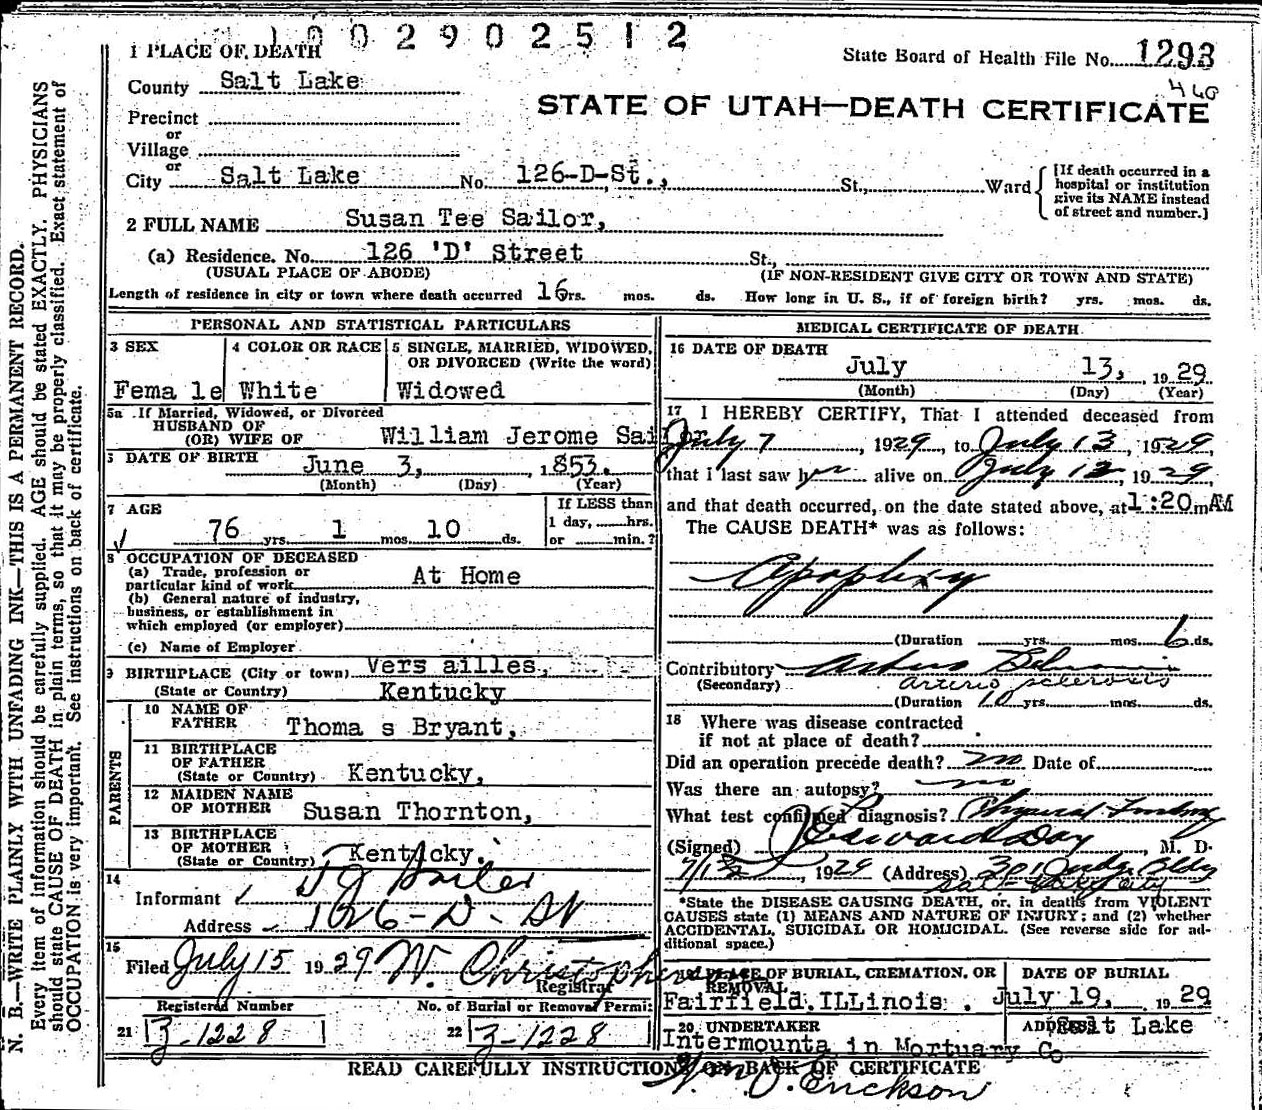 1 0 0 2 9 0 2 5 1 2
1 PLACE OF DEATH
State Board of Health File No. 1293
County Salt Lake
460
STATE OF UTAH—DEATH CERTIFICATE
Precinct
or
Village
or
City Salt Lake No. 126-D-St., St., Ward
[If death occurred in a hospital or institution give its NAME instead of street and number.]
2 FULL NAME Susan Tee Sailor,
(a) Residence. No. 126 'D' Street St.,
(USUAL PLACE OF ABODE) (IF NON-RESIDENT GIVE CITY OR TOWN AND STATE)
Length of residence in city or town where death occurred 16 yrs. mos. ds. How long in U. S., if of foreign birth? yrs. mos. ds.
PERSONAL AND STATISTICAL PARTICULARS
3 SEX 4 COLOR OR RACE 5 SINGLE, MARRIED, WIDOWED,
OR DIVORCED (Write the word)
Fema le White Widowed
5a If Married, Widowed, or Divorced
HUSBAND OF
(OR) WIFE OF William Jerome Sailor
6 DATE OF BIRTH June 3, 1853.
(Month) (Day) (Year)
7 AGE If LESS than
1 day, hrs.
76 yrs. 1 mos. 10 ds. or min.?
8 OCCUPATION OF DECEASED
(a) Trade, profession or
particular kind of work At Home
(b) General nature of industry,
business, or establishment in
which employed (or employer)
(c) Name of Employer
9 BIRTHPLACE (City or town) Vers ailles,
(State or Country) Kentucky
PARENTS
10 NAME OF
FATHER Thoma s Bryant,
11 BIRTHPLACE
OF FATHER
(State or Country) Kentucky,
12 MAIDEN NAME
OF MOTHER Susan Thornton,
13 BIRTHPLACE
OF MOTHER
(State or Country) Kentucky.
14
Informant
Address 126-D-St
15
Filed July 15 1929 W. Christophers
Registrar
Registered Number No. of Burial or Removal Permit
21 3-1228 22 3-1228
MEDICAL CERTIFICATE OF DEATH
16 DATE OF DEATH
July 13, 1929
(Month) (Day) (Year)
17 I HEREBY CERTIFY, That I attended deceased from
July 7, 1929, to July 13, 1929,
that I last saw her alive on July 12, 1929
and that death occurred, on the date stated above, at 1:20 m AM
The CAUSE DEATH* was as follows:
Apoplexy
(Duration yrs. mos. 6 ds.
Contributory Arterio Sclerosis
(Secondary) arterio sclerosis
(Duration 10 yrs. mos. ds.
18 Where was disease contracted
if not at place of death?
Did an operation precede death? no Date of
Was there an autopsy? no
What test confirmed diagnosis? Physical Finding
(Signed) Edward Day, M. D.
7/13, 1929 (Address) 301 Judge Bldg
Salt Lake City
*State the DISEASE CAUSING DEATH, or, in deaths from VIOLENT
CAUSES state (1) MEANS AND NATURE OF INJURY; and (2) whether
ACCIDENTAL, SUICIDAL OR HOMICIDAL. (See reverse side for ad-
ditional space.)
19 PLACE OF BURIAL, CREMATION, OR
REMOVAL
DATE OF BURIAL
Fairfield, ILLinois. July 19, 1929
20 UNDERTAKER ADDRESS Salt Lake
Intermounta in Mortuary Co
Wm. J. Erickson
READ CAREFULLY INSTRUCTIONS ON BACK OF CERTIFICATE
N. B.—WRITE PLAINLY WITH UNFADING INK—THIS IS A PERMANENT RECORD.
Every item of information should be carefully supplied. AGE should be stated EXACTLY. PHYSICIANS
should state CAUSE OF DEATH in plain terms, so that it may be properly classified. Exact statement of
OCCUPATION is very important. See instructions on back of certificate.